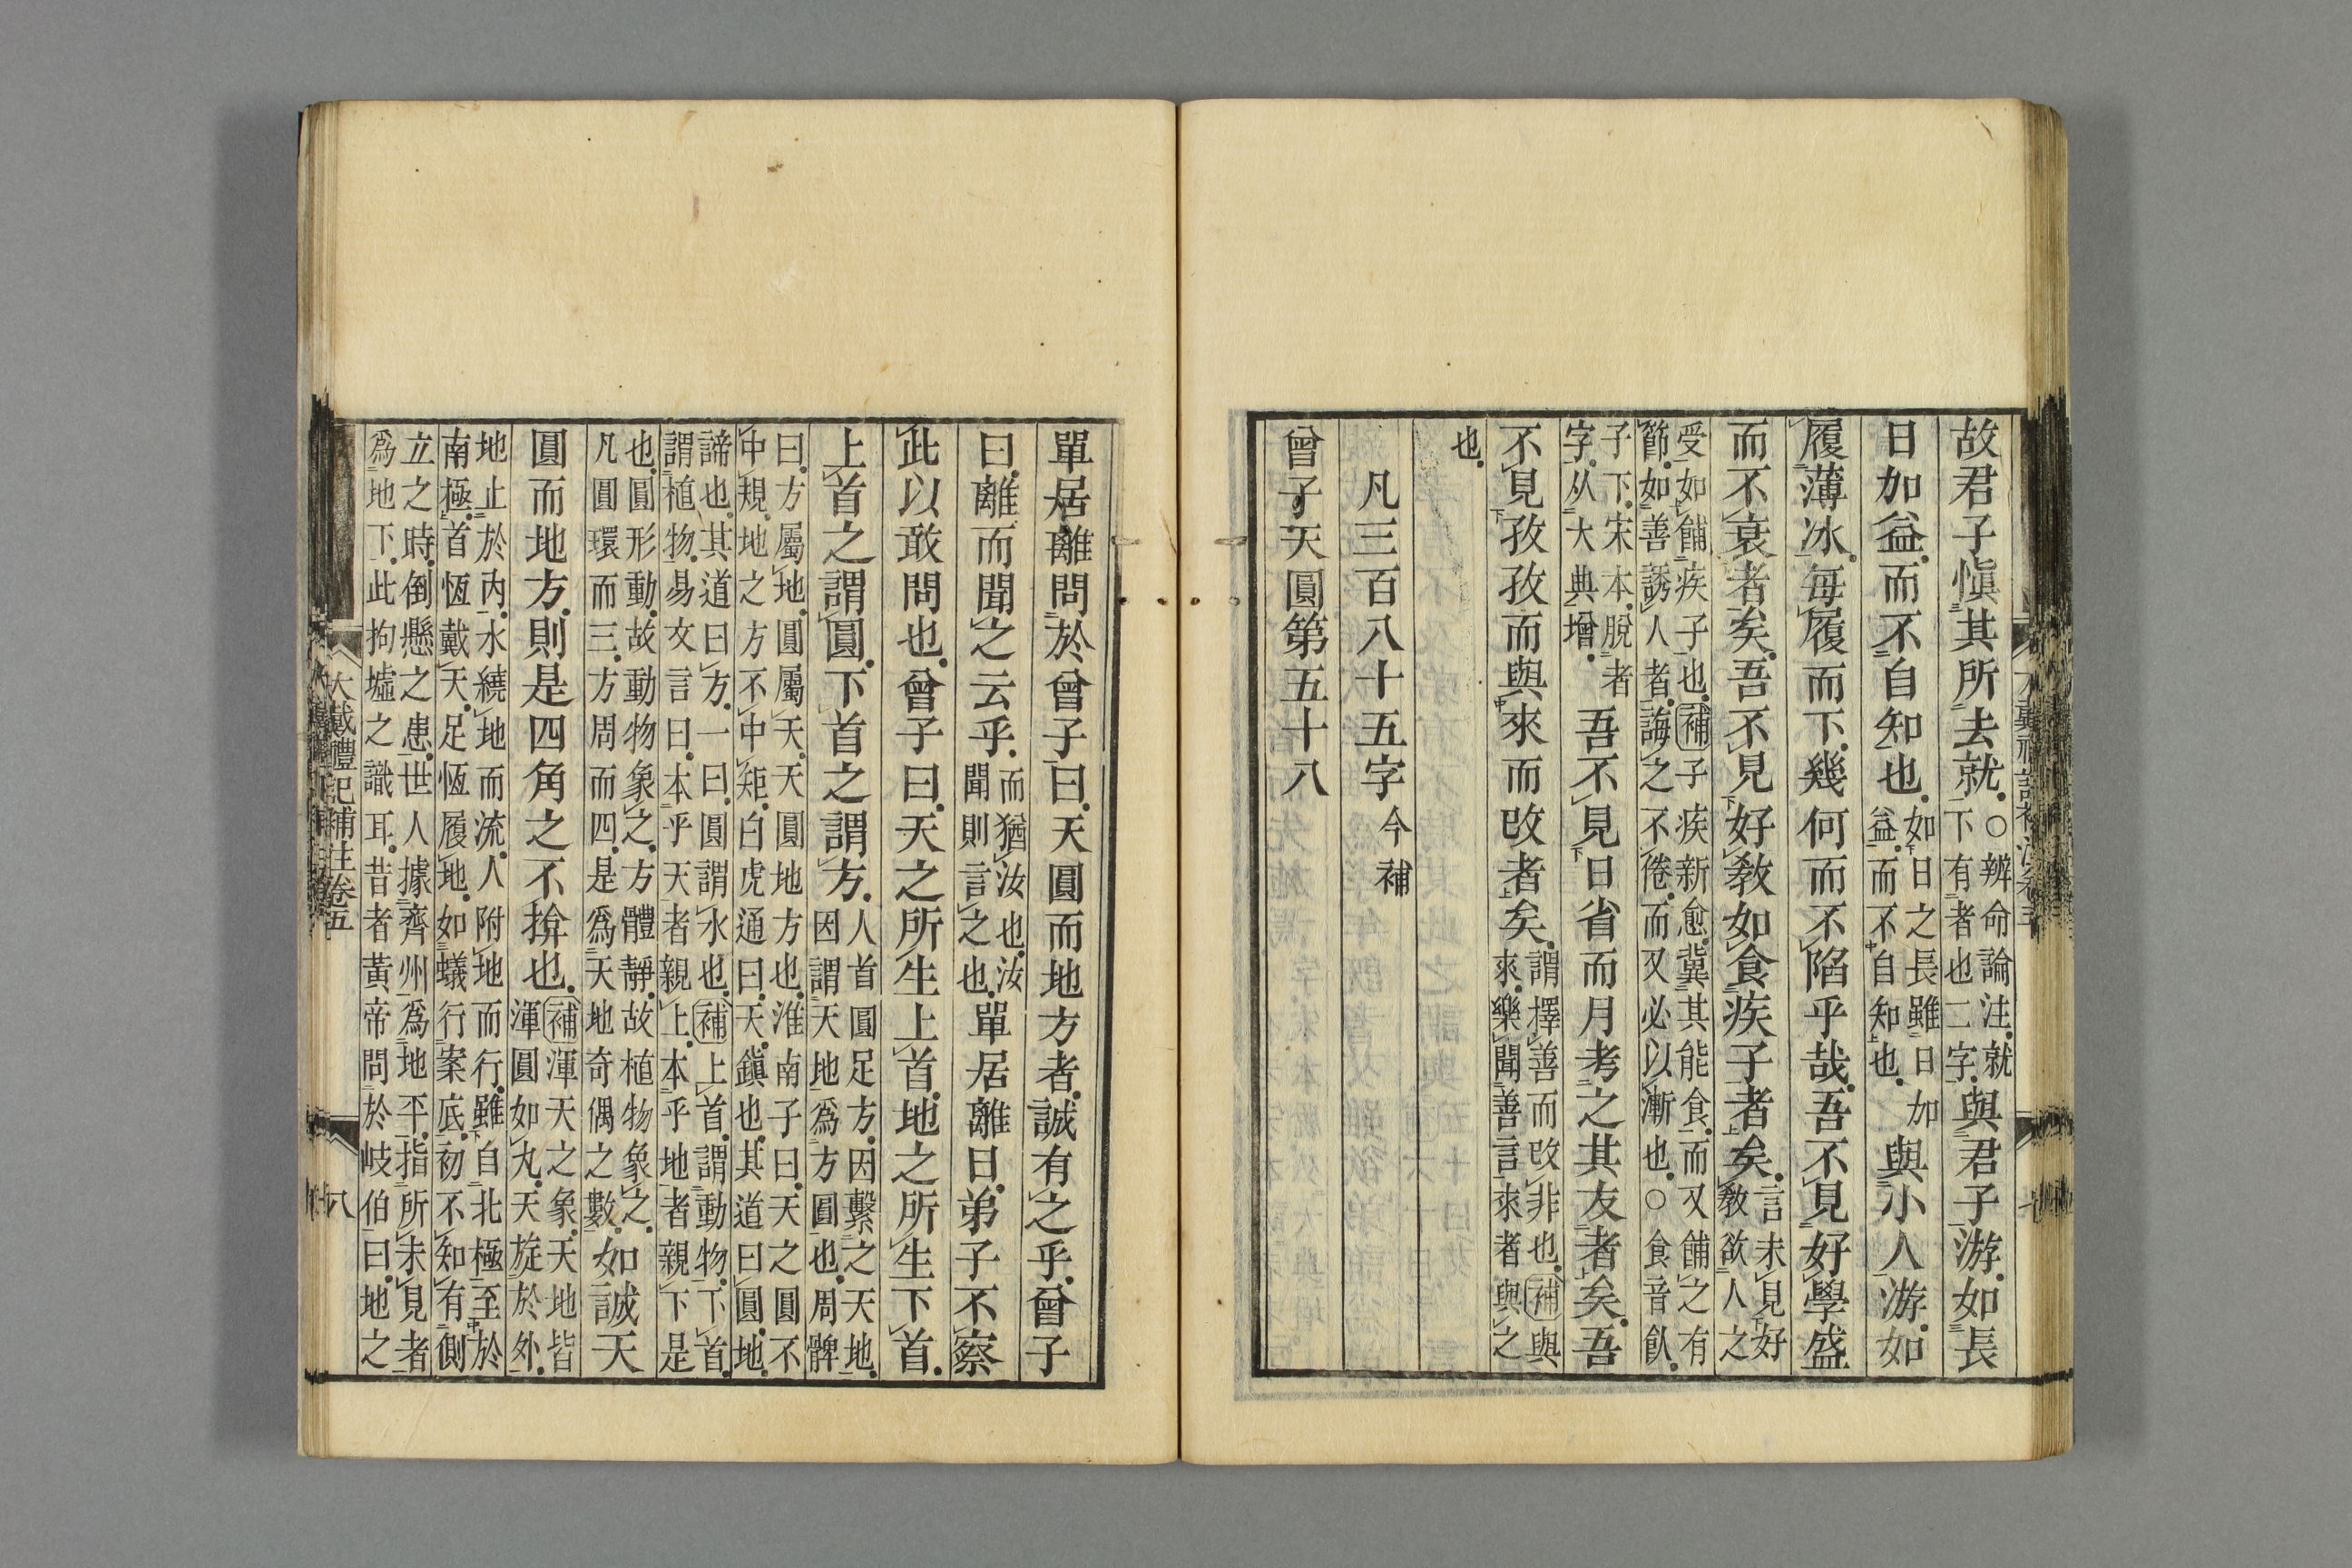 故君子愼其所去就○辨命論注就下有者也二字與君子游如長
日加益而不自知也如日之長雖日加益而不自知也與小人游如
履薄冰每履而下幾何而不陷乎哉吾不見好學盛
而不衰者矣吾不見好敎如食疾子者矣言未見好敎欲人之
受如餔疾子也補子疾新愈冀其能食而又餔之有節如善誘人者誨之不倦而又必以漸也○食音飤
子下宋本脫者字从大典增吾不見日省而月考之其友者矣吾
不見孜孜而與來而改者矣謂擇善而改非也補與來樂聞善言來者與之
也
凡三百八十五字今補
曾子天圓第五十八
單居離問於曾子曰天圓而地方者誠有之乎曾子
曰離而聞之云乎而猶汝也汝聞則言之也單居離曰弟子不察
此以敢問也曾子曰天之所生上首地之所生下首
上首之謂圓下首之謂方人首圓足方因繫之天地因謂天地爲方圓也周髀
曰方屬地圓屬天天圓地方也淮南子曰天之圓不中規地之方不中矩白虎通曰天鎮也其道曰圓地
諦也其道曰方一曰圓謂水也補上首謂動物下首謂植物易文言曰本乎天者親上本乎地者親下是
也圓形動故動物象之方體靜故植物象之凡圓環而三方周而四是爲天地奇偶之數如誠天
圓而地方則是四角之不揜也補渾天之象天地皆渾圓如丸天旋於外
地止於內水繞地而流人附地而行雖自北極至於南極首恆戴天足恆履地如蟻行案底初不知有側
立之時倒懸之患世人據齊州爲地平指所未見者爲地下此拘墟之識耳昔者黃帝問於岐伯曰地之
大戴禮記補注卷五
八